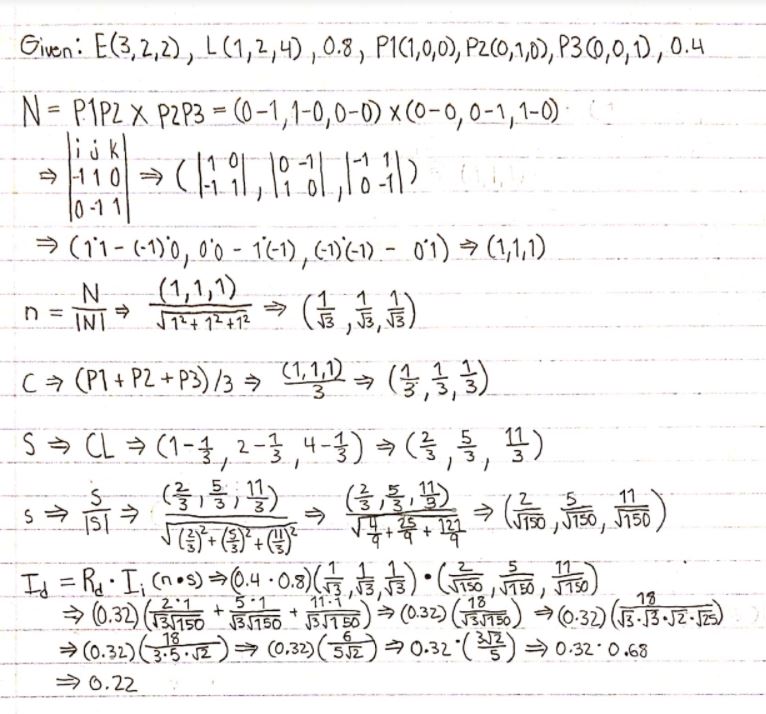 Given: E(3,2,2), L(1,2,4), 0.8, P1(1,0,0), P2(0,1,0), P3(0,0,1), 0.4
N = P1P2 X P2P3 = (0-1, 1-0, 0-0) x (0-0, 0-1, 1-0)
⇒ |i j k; -1 1 0; 0 -1 1| ⇒ ( |1 0; -1 1|, |0 -1; 1 0|, |-1 1; 0 -1| )
⇒ (1·1 - (-1)·0, 0·0 - 1·(-1), (-1)·(-1) - 0·1) ⇒ (1,1,1)
n = N/|N| ⇒ (1,1,1)/√(1²+1²+1²) ⇒ (1/√3, 1/√3, 1/√3)
C ⇒ (P1 + P2 + P3)/3 ⇒ (1,1,1)/3 ⇒ (1/3, 1/3, 1/3)
S ⇒ CL ⇒ (1-1/3, 2-1/3, 4-1/3) ⇒ (2/3, 5/3, 11/3)
s ⇒ S/|S| ⇒ (2/3, 5/3, 11/3)/√((2/3)²+(5/3)²+(11/3)²) ⇒ (2/3, 5/3, 11/3)/√(4/9 + 25/9 + 121/9) ⇒ (2/√150, 5/√150, 11/√150)
I_d = R_d · I_i (n•s) ⇒ (0.4 · 0.8)(1/√3, 1/√3, 1/√3) • (2/√150, 5/√150, 11/√150)
⇒ (0.32)(2·1/√3√150 + 5·1/√3√150 + 11·1/√3√150) ⇒ (0.32)(18/√3√150) ⇒ (0.32)(18/√3·√3·√2·√25)
⇒ (0.32)(18/3·5·√2) ⇒ (0.32)(6/5√2) ⇒ 0.32·(3√2/5) ⇒ 0.32·0.68
⇒ 0.22